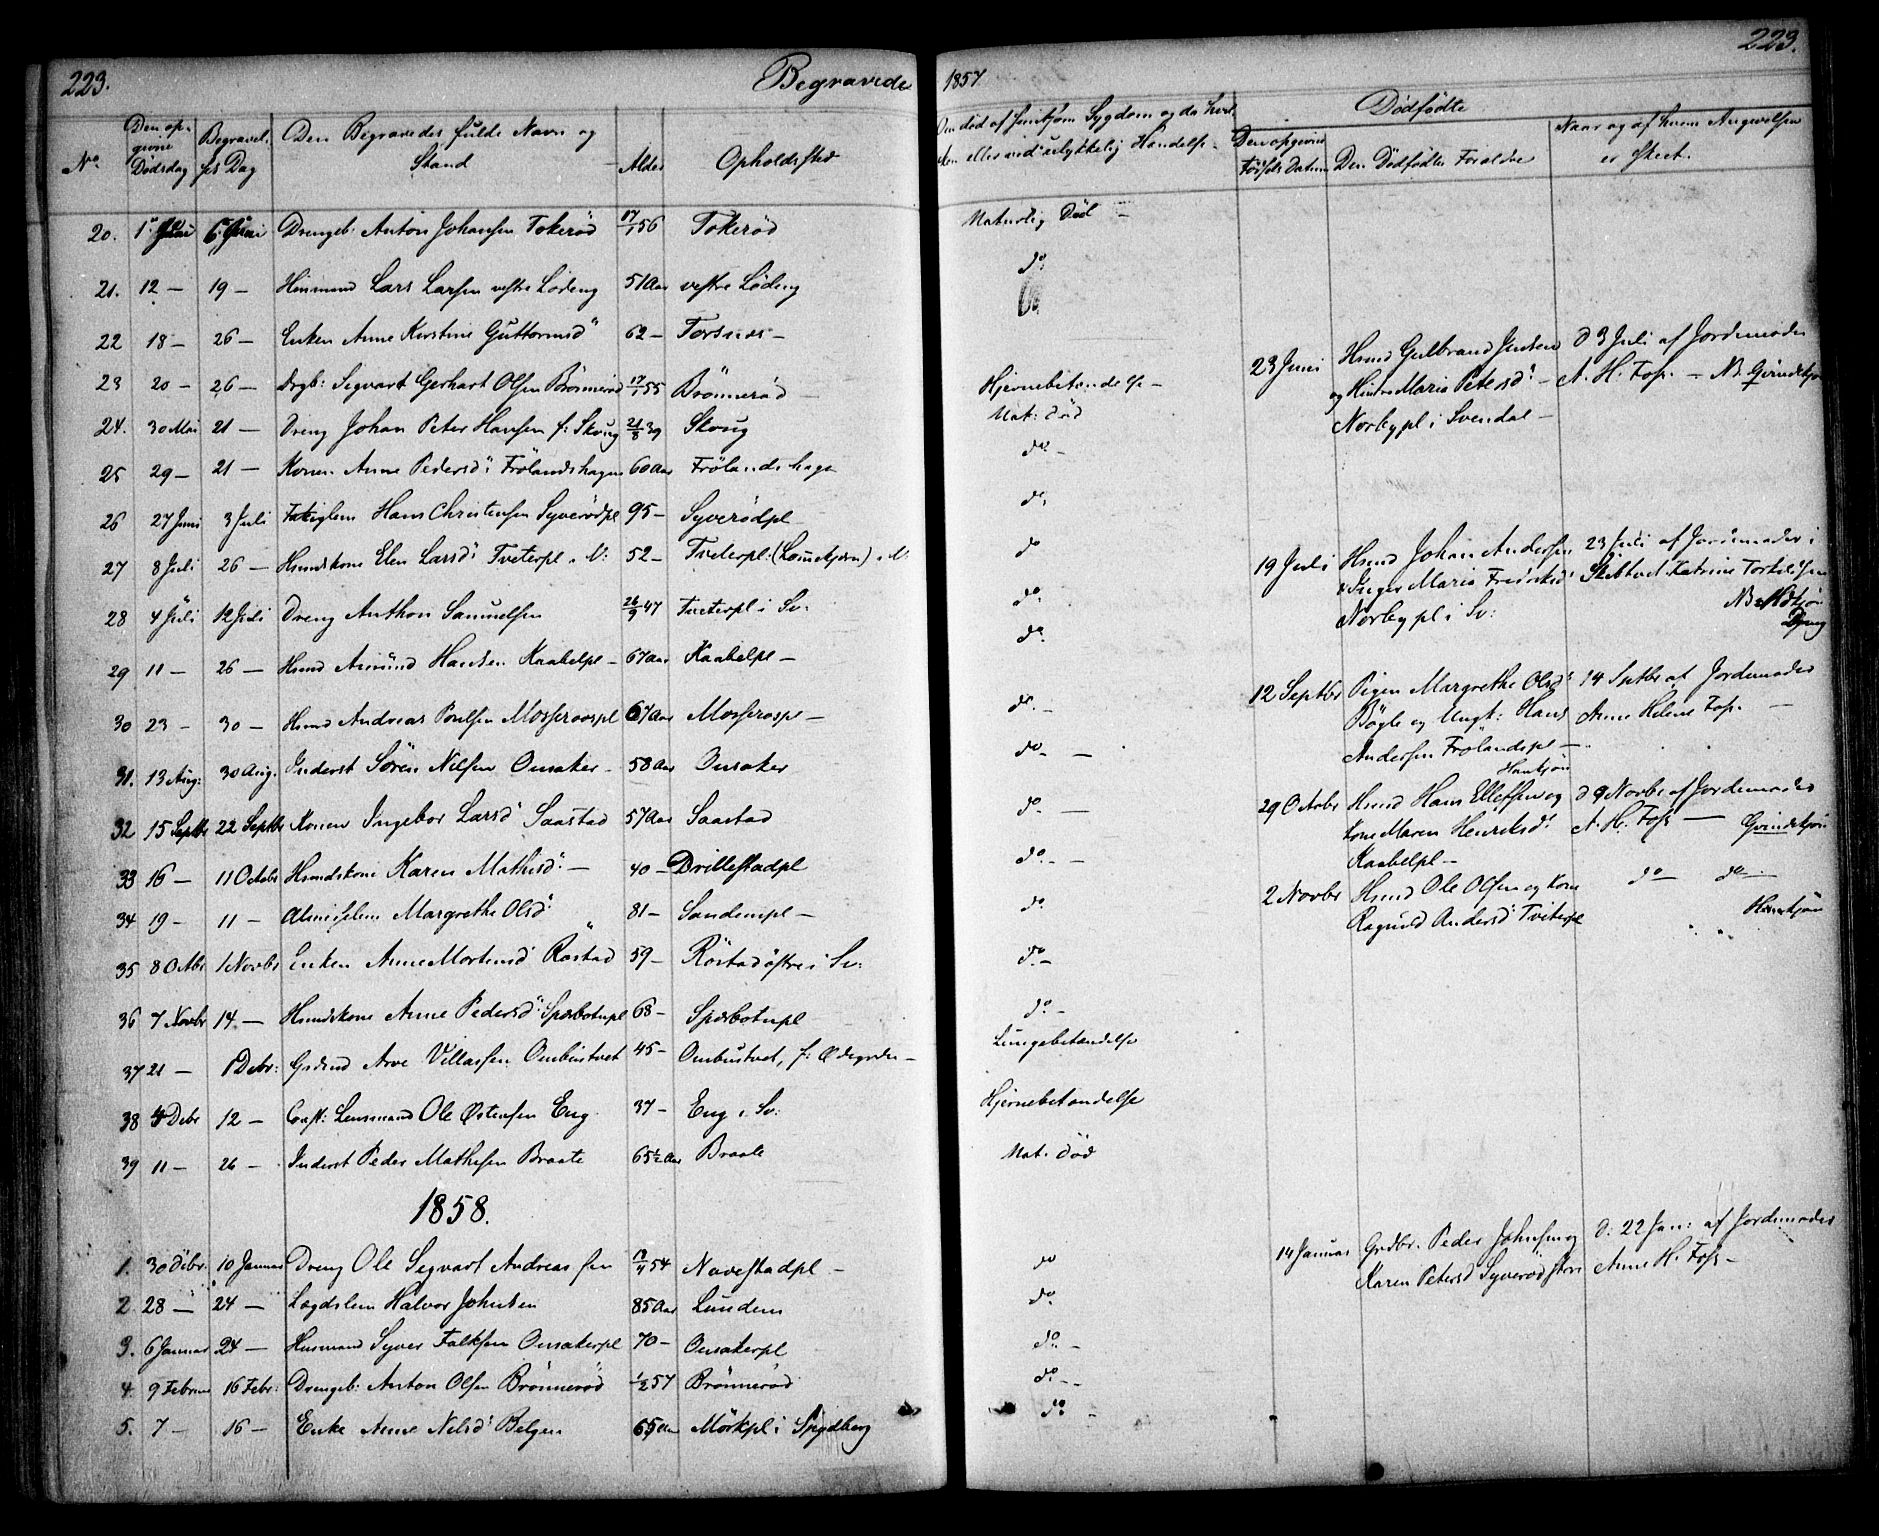 223.
Begravede
Den op-
givne
Dødsdag
Begravel-
ses Dag
No
Den Begravedes fulde Navn og
Stand
Alder
Opholdssted
20. 1 Juni 6 Juni Drengeb: Anton Johansen Tokerød 17/1 56 Tokerød
21. 12 — 19 — Husmand Lars Larsen vestre Lødeng 51 Aar vestre Lødeng
22 18 — 26 — Enken Anne Kirstine Guttormsd 62 — Torsnes —
23 20 — 26 — Drgb: Segvart Gerhart Olsen Brønnerød 17/1 55 Brønnerød —
24. 30 Mai 21 — Dreng Johan Peter Hansen f: Skoug 21/8 39 Skoug
25 29 — 21 — Konen Anne Pedersd: Frölandshagen 60 Aar Frölandshagen
26 27 Juni 3 Juli Fattiglem Hans Christensen Syverødpl 95 — Syverødpl
27 8 Juli 26 — Hsmdskone Elen Larsd: Tveterpl i N: 52 — Tveterpl: i N:
28 4 Juli 12 Juli Dreng Anthon Samuelsen 26/9 47 Tveterpl i Sv:
29 11 — 26 — Hsmd Amund Hansen Kaabelpl — 67 Aar Kaabelpl —
30 23 — 30 — Hsmd Andreas Poulsen Mosserospl 67 Aar Mosserospl —
31. 13 Aug: 30 Aug. Inderst Sören Nilsen Onsaker — 58 Aar Onsaker
32 15 Septbr 22 Septbr Konen Ingebor Larsd Saastad 57 Aar Saastad
33 16 — 11 Octobr Hsmdskone Karen Mathisd: — 40 — Drillestadpl
34 19 — 11 — Almislem Margrethe Olsd: 81 — Sandempl —
35 8 Octbr 1 Novbr Enken Anne Mortensd Röstad 59 — Röstad östre i Sv:
36 7 Novbr 14 — Hsmdskone Anne Pedersd: Spærbotnpl 68 — Spærbotnpl
37 21 — 1 Debr: Grdmd Arve Villassen Ombustvet 45 — Ombustvet, f:
38 4 Debr 12 — Const: Lensmand Ole Østensen Eng 37 — Eng i Sv:
39 11 — 26 — Inderst Peder Mathesen Braate 65½ Aar Braate
1858.
1. 30 Debr. 10 Januar Dreng Ole Segvart Andreassen 54 Navestadpl —
2 28 — 24 — Lægdslem Halvor Johnsen 85 Aar Lunden
3. 6 Januar 24 — Husmand Syver Falksen Onsakerpl 70 — Onsakerpl
4. 9 Februar 16 Febr: Drengeb: Anton Olsen Brönneröd 1/2 57 Brønnerød
5. 7 — 16 — Enke Anne Nilsd: Belgen 65 Aar Mörkpl i Spydberg
1857
223.
Om død af smitsom Sygdom og da hvil-
ken eller ved ulykkelig Hændelse.
Dødfødte
Den opgivne
Fødsels Datum
Den Dødfødtes Forældre
Naar og af hvem Angivelsen
er skeet.
Naturlig Død —
do.
Hjernebetændelse —
Nat: død
do. —
do.
do
do.
do.
do. —
do — —
do. —
do. — —
do.
do. —
do. —
Lungebetændelse
Hjernebetændelse
Nat. død
do
do.
do. —
do. — —
do. —
23 Juni Hsmd Gulbrand Jensen
og Hustru Maria Petersd: —
Norbypl i Svendal —
d 3 Juli af Jordemoder
A. H. Foss. — NB. Qvindekjøn
19 Juli Hsmd Johan Andersen
& Inger Maria Fredriksd:
Norbypl i Sv:
23 Juli af Jordemoder i
Skibtvet Katrine Torkelsen
12 Septbr Pigen Margrethe Olsd:
Bøgle og Ungk: Hans
Andersen Frolandspl —
Hankjøn
14 Septbr af Jordemoder
Anne Helene Foss. —
29 Octobr Hsmd Hans Ellefsen og
Kone Maren Henriksd:
Kaabelpl —
d 9 Novbr af Jordemoder
A. H. Foss — Qvindekjøn
2 Novbr Hsmd Ole Olsen og Kone
Ragnild Andersd: Tveterpl
do — do —
Hankjøn
14 Januar Grdbr. Peder Johnsen og
Karen Petersd Syverød store
d: 22 Jan: af Jordemoder
Anne H. Foss —